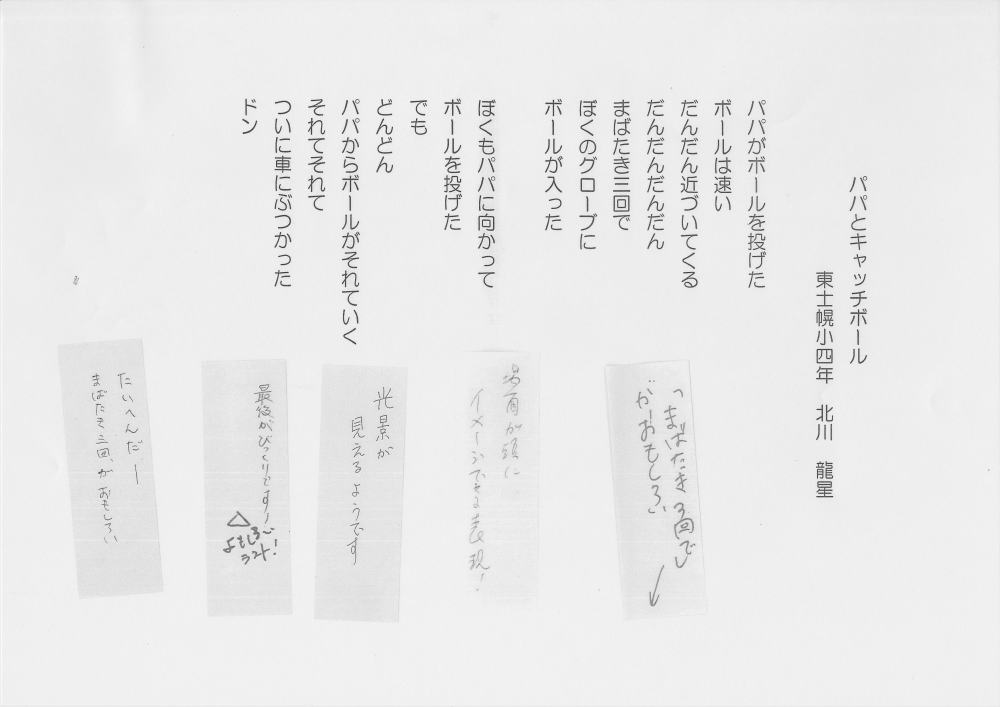 パパとキャッチボール
東士幌小四年　北川　龍星
パパがボールを投げた
ボールは速い
だんだん近づいてくる
だんだんだんだん
まばたき三回で
ぼくのグローブに
ボールが入った
ぼくもパパに向かって
ボールを投げた
でも
どんどん
パパからボールがそれていく
それてそれて
ついに車にぶつかった
ドン
「まばたき3回で」
がーおもしろい
場面が頭に
イメージできる表現！
光景が
見えるようです
最後がびっくりです！
おもしろい
ラスト！
たいへんだー
まばたき三回、がおもしろい